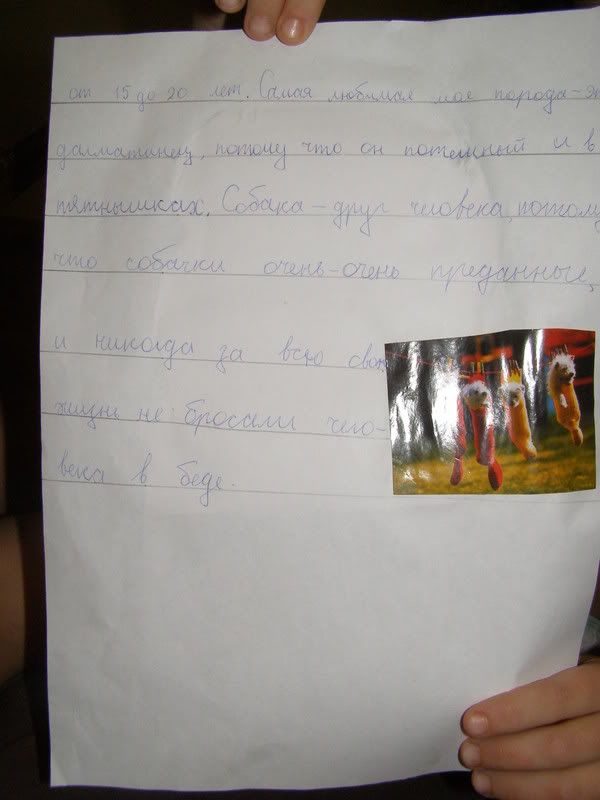 от 15 до 20 лет. Самая любимая мое порода - э
далматинец, потому что он потешный и в
пятнышках. Собака - друг человека, потому
что собачки очень-очень преданные,
и никогда за всю свою
жизнь не бросали чело-
века в беде.